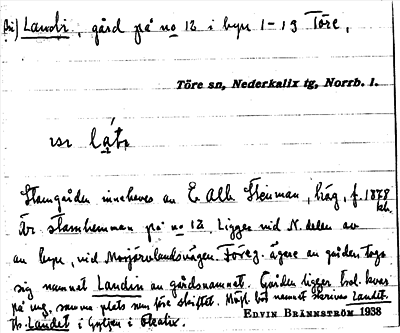 Landri, gård på no 12 i byn 1-13 Töre,
Töre sn, Nederkalix tg, Norrb. l.
Stamgården innehaves av E. Alb. Stenman, häg, f. 1878
Är stamhemman på no 12. Ligger vid N. delen av
av byn, vid Morjärvlandsvägen. Föreg. ägare av gården toga
sig namnet Landin av gårdsnamnet. Gården ligger kvar
på ung. samma plats som före skiftet. namnet skrivas Landet.
Landet i
EDVIN BRÄNNSTRÖM 1938